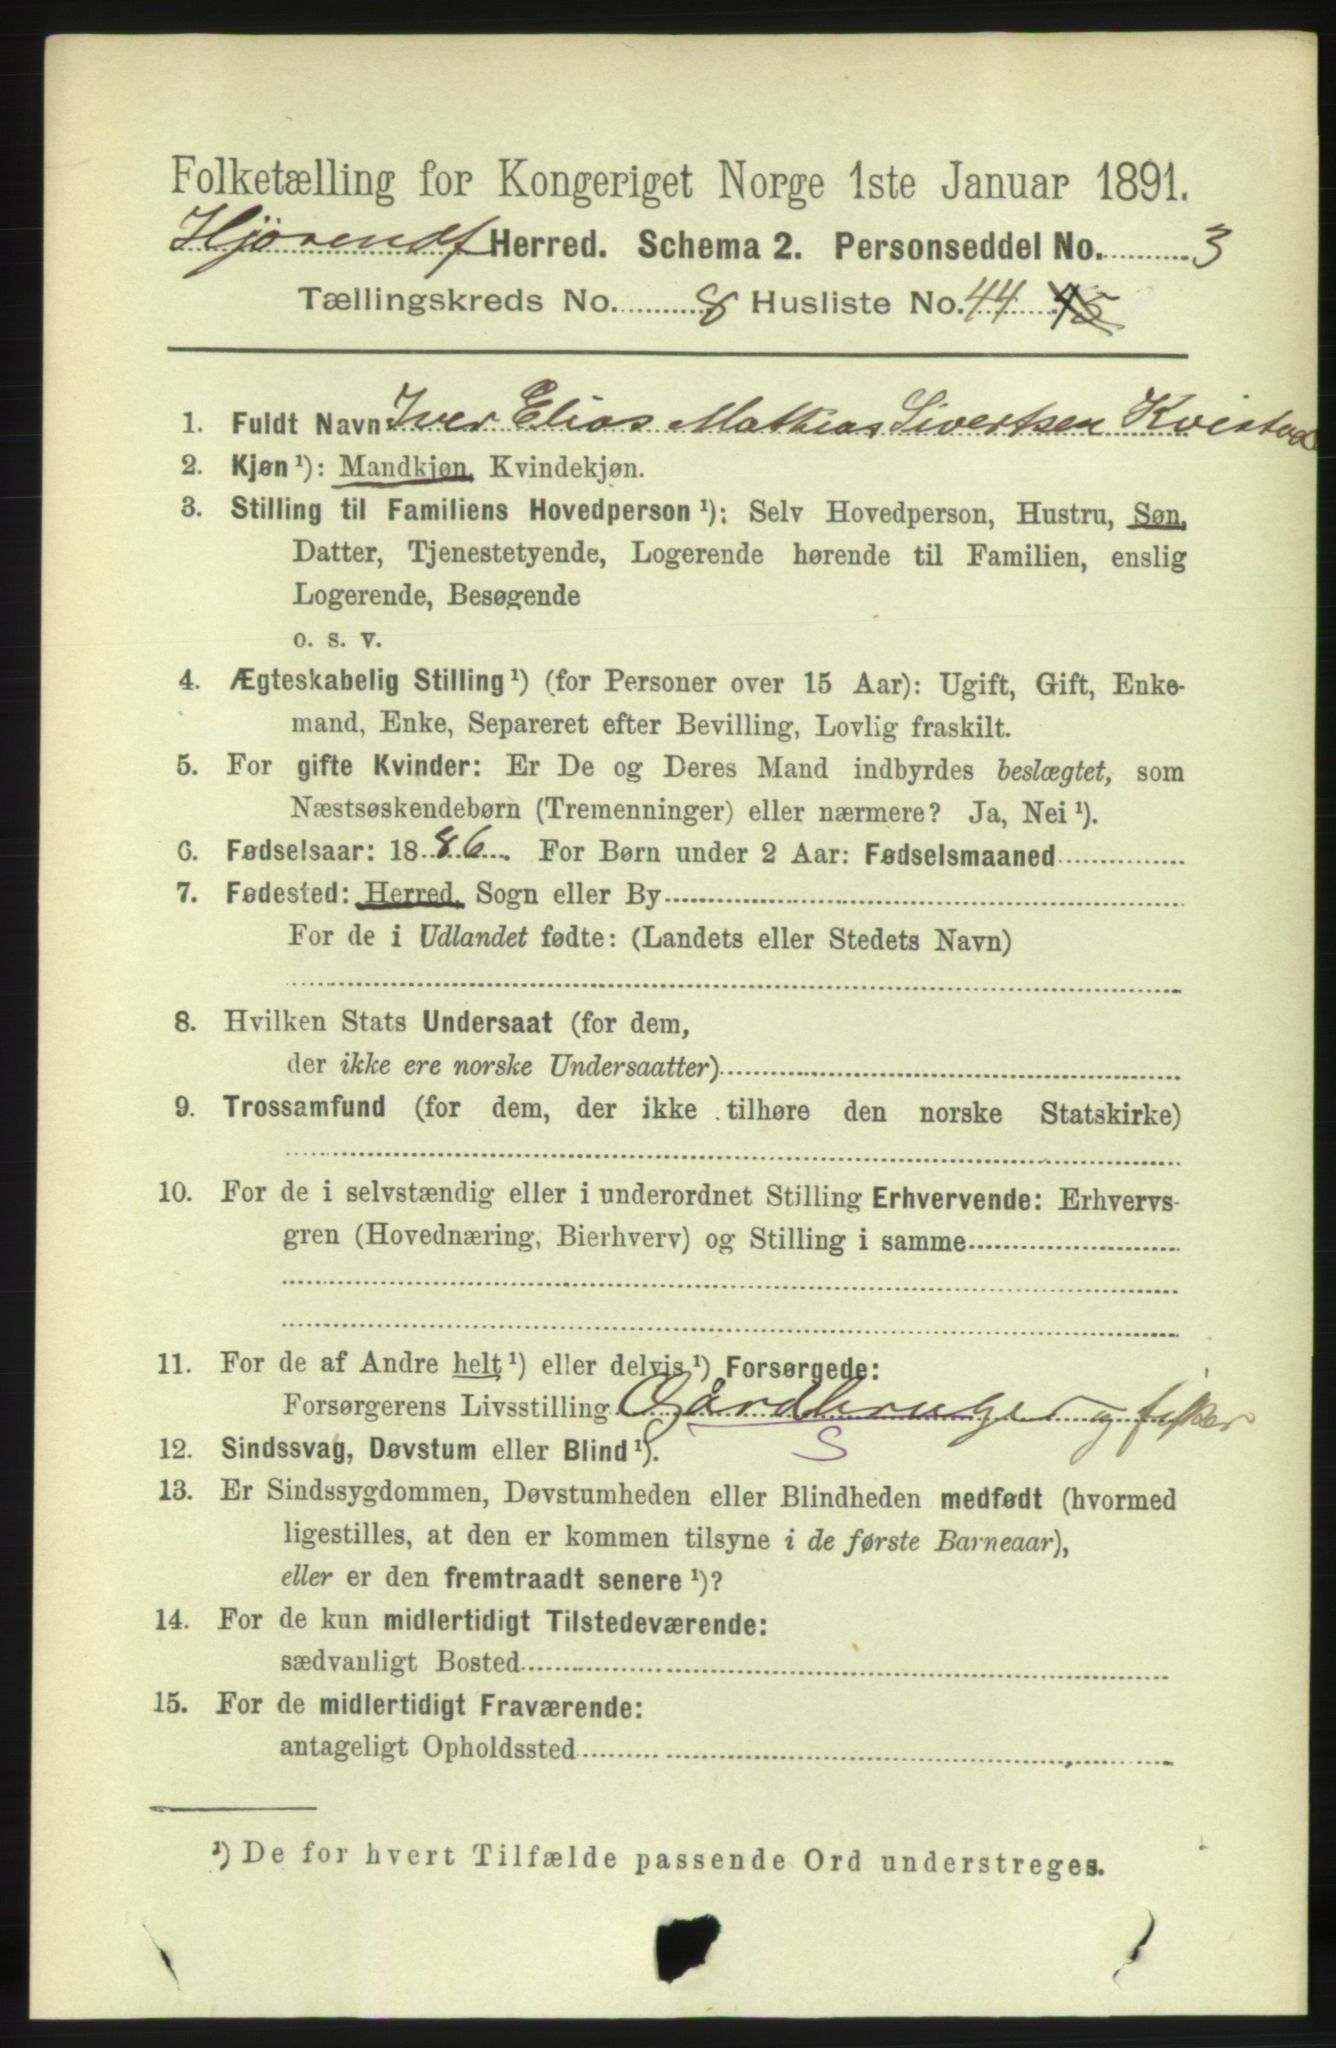 Folketælling for Kongeriget Norge 1ste Januar 1891.
Hjørendf Herred. Schema 2. Personseddel No. 3
Tællingskreds No. 8 Husliste No. 44 45
1. Fuldt Navn Iver Elias Mathias Sivertsen Kvistad
2. Kjøn ¹): Mandkjøn, Kvindekjøn.
3. Stilling til Familiens Hovedperson ¹): Selv Hovedperson, Hustru, Søn,
Datter, Tjenestetyende, Logerende hørende til Familien, enslig
Logerende, Besøgende
o. s. v.
4. Ægteskabelig Stilling ¹) (for Personer over 15 Aar): Ugift, Gift, Enke-
mand, Enke, Separeret efter Bevilling, Lovlig fraskilt.
5. For gifte Kvinder: Er De og Deres Mand indbyrdes beslægtet, som
Næstsøskendebørn (Tremenninger) eller nærmere? Ja, Nei ¹).
6. Fødselsaar: 1886. For Børn under 2 Aar: Fødselsmaaned
7. Fødested: Herred, Sogn eller By
For de i Udlandet fødte: (Landets eller Stedets Navn)
8. Hvilken Stats Undersaat (for dem,
der ikke ere norske Undersaatter)
9. Trossamfund (for dem, der ikke tilhøre den norske Statskirke)
10. For de i selvstændig eller i underordnet Stilling Erhvervende: Erhvervs-
gren (Hovednæring, Bierhverv) og Stilling i samme
11. For de af Andre helt ¹) eller delvis ¹) Forsørgede:
Forsørgerens Livsstilling Gårdbruger og fisker
S
12. Sindssvag, Døvstum eller Blind ¹).
13. Er Sindssygdommen, Døvstumheden eller Blindheden medfødt (hvormed
ligestilles, at den er kommen tilsyne i de første Barneaar),
eller er den fremtraadt senere ¹)?
14. For de kun midlertidigt Tilstedeværende:
sædvanligt Bosted
15. For de midlertidigt Fraværende:
antageligt Opholdssted
¹) De for hvert Tilfælde passende Ord understreges.